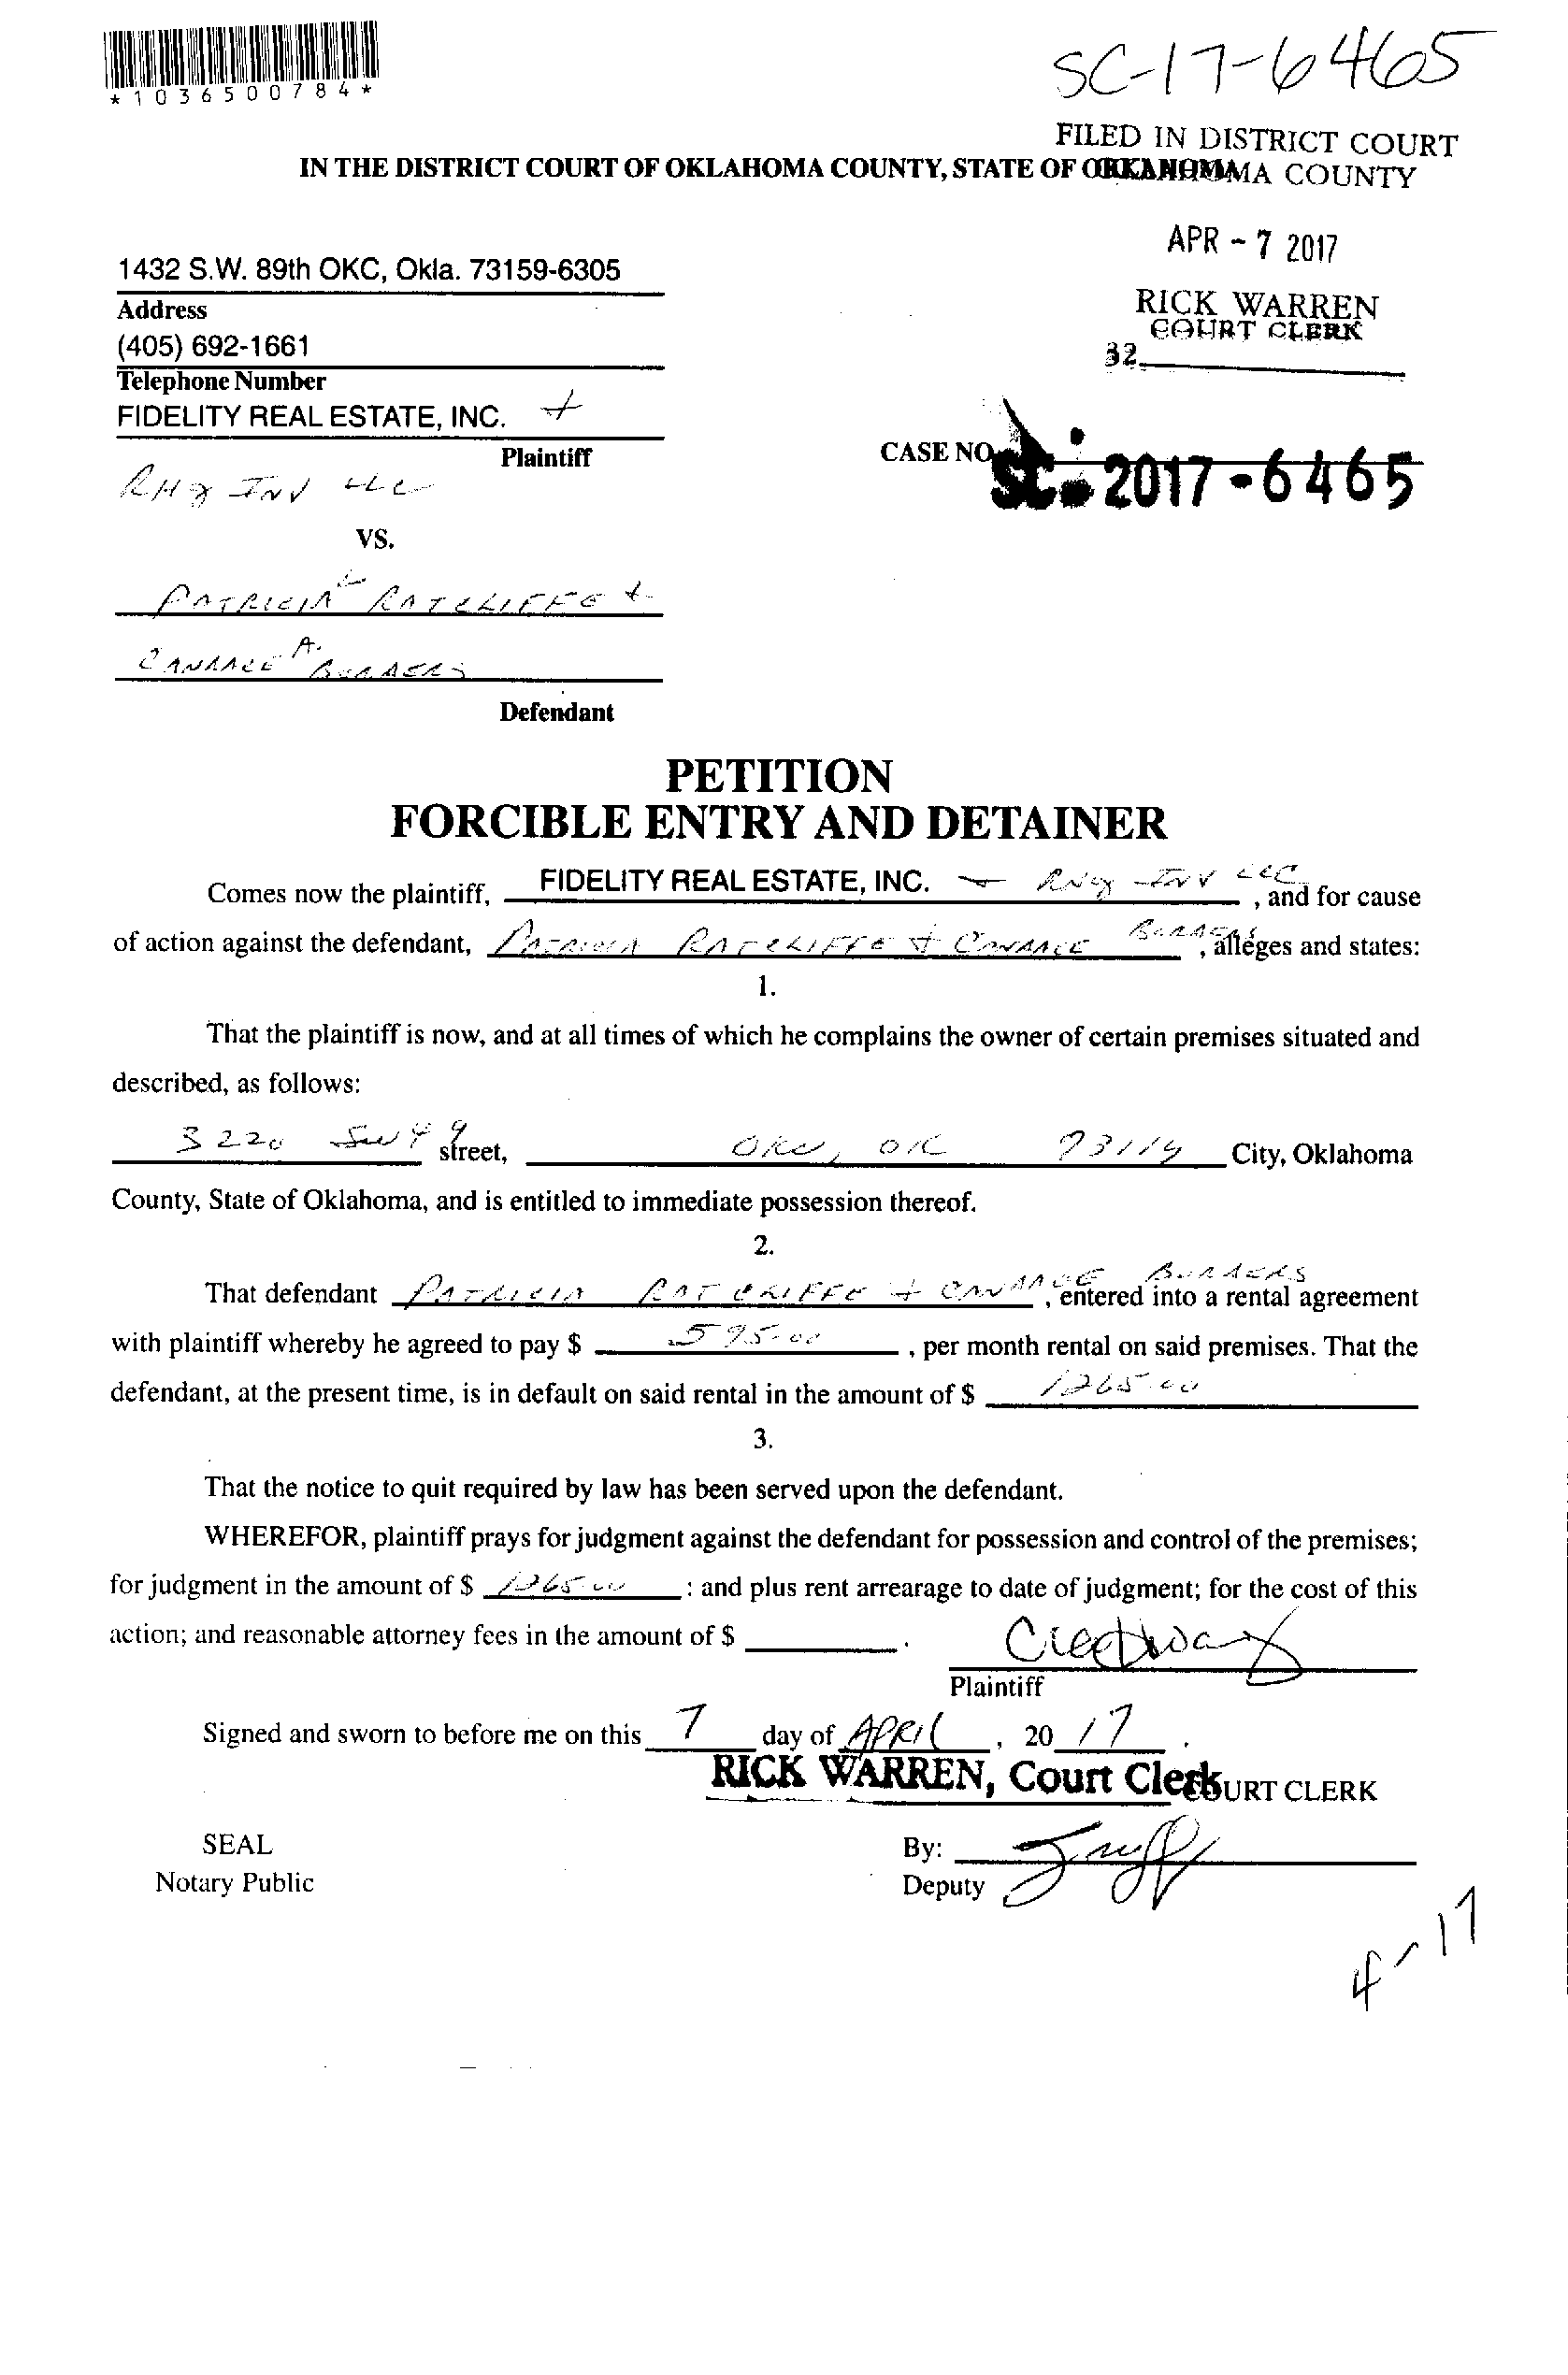 *1036500784*
SC-17-6465
FILED IN DISTRICT COURT
OKLAHOMA COUNTY
IN THE DISTRICT COURT OF OKLAHOMA COUNTY, STATE OF OKLAHOMA
APR - 7 2017
1432 S.W. 89th OKC, Okla. 73159-6305
Address
RICK WARREN
COURT CLERK
(405) 692-1661
32
Telephone Number
FIDELITY REAL ESTATE, INC. +
Plaintiff
CASE NO.
SC - 2017 - 6465
INV LLC
VS.
PATRICIA L RATCLIFFE +
CANDACE A.
Defendant
PETITION
FORCIBLE ENTRY AND DETAINER
Comes now the plaintiff, FIDELITY REAL ESTATE, INC. + INV LLC, and for cause
of action against the defendant, PATRICIA RATCLIFFE + CANDACE, alleges and states:
1.
That the plaintiff is now, and at all times of which he complains the owner of certain premises situated and
described, as follows:
3220 SW 49 street, OKC, OK 73119 City, Oklahoma
County, State of Oklahoma, and is entitled to immediate possession thereof.
2.
That defendant PATRICIA RATCLIFFE + CANDACE, entered into a rental agreement
with plaintiff whereby he agreed to pay $ 595.00, per month rental on said premises. That the
defendant, at the present time, is in default on said rental in the amount of $ 1265.00
3.
That the notice to quit required by law has been served upon the defendant.
WHEREFOR, plaintiff prays for judgment against the defendant for possession and control of the premises;
for judgment in the amount of $ 1265.00 : and plus rent arrearage to date of judgment; for the cost of this
action; and reasonable attorney fees in the amount of $ .
Plaintiff
Signed and sworn to before me on this 7 day of APRIL, 20 17.
RICK WARREN, Court Clerk
COURT CLERK
SEAL
By:
Notary Public
Deputy
4-17